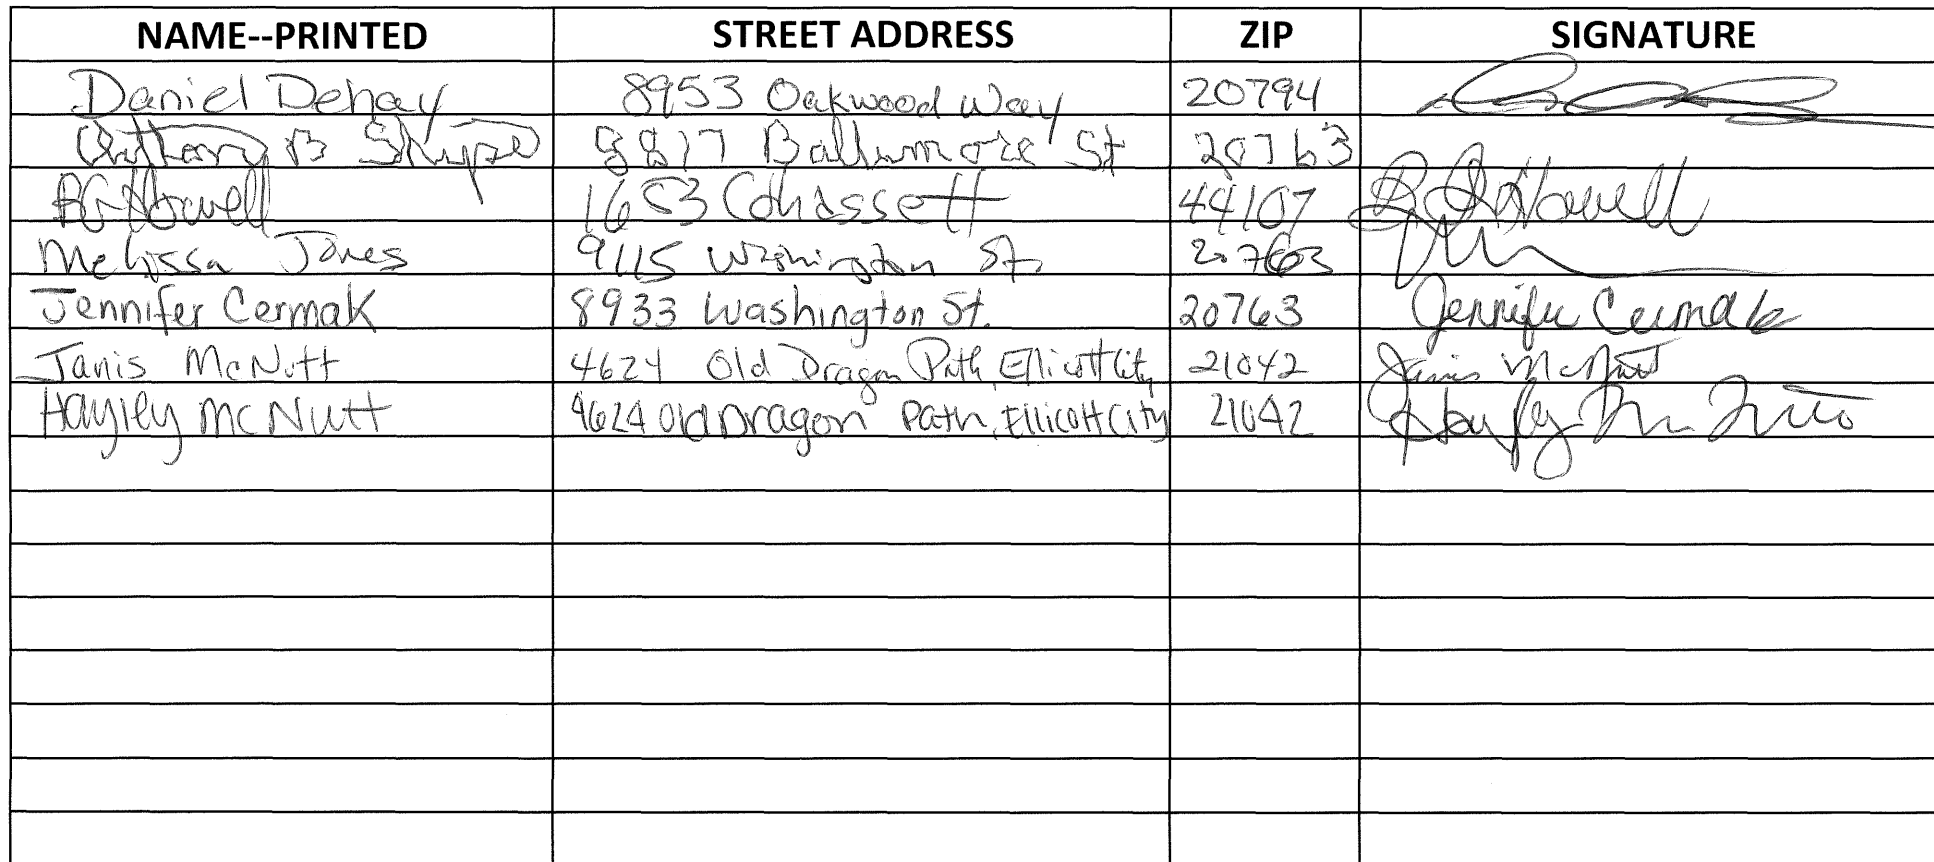 NAME--PRINTED STREET ADDRESS ZIP SIGNATURE
Daniel Dehay 8953 Oakwood Way 20794
Anthony B 8817 Baltimore St 20763
Howell 1653 Cohassett 44107 Howell
Melissa Jones 9115 Washington St. 20763
Jennifer Cermak 8933 Washington St. 20763 Jennifer Cermak
Janis McNutt 4624 Old Dragon Path, Ellicott City 21042 Janis McNutt
Hayley McNutt 4624 Old Dragon Path, Ellicott City 21042 Hayley